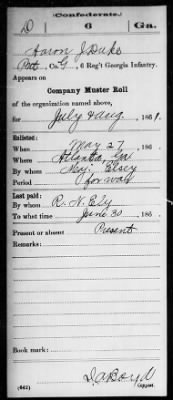 Confederate.
D 6 Ga.
Aaron J Duke
Pvt, Co. G, 6 Reg't Georgia Infantry.
Appears on
Company Muster Roll
of the organization named above,
for July & Aug, 1861.
Enlisted:
When May 27, 186
Where Atlanta, Ga
By whom Maj. Elsey
Period for war
Last paid:
By whom R. N. Ely
To what time June 30, 186
Present or absent Present
Remarks:
Book mark:
(642) Copyist.